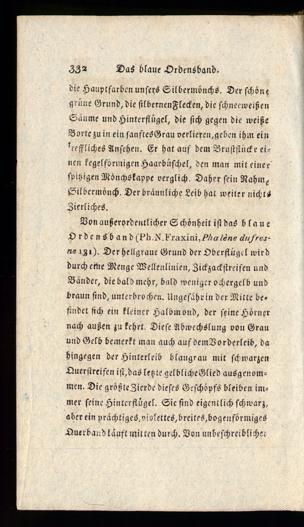 332 Das blaue Ordensband.
die Hauptfarben unsers Silbermönchs. Der schöne
grüne Grund, die silbernen Flecken, die schneeweißen
Säume und Hinterflügel, die sich gegen die weiße
Borte zu in ein sanftes Grau verlieren, geben ihm ein
treffliches Ansehen. Er hat auf dem Bruststücke ei-
nen kegelförmigen Haarbüschel, den man mit einer
spitzigen Mönchskappe verglich. Daher sein Nahme
Silbermönch. Der bräunliche Leib hat weiter nichts
Zierliches.
Von außerordentlicher Schönheit ist das blaue
Ordensband (Ph. N. Fraxini, Phalène du fres-
ne 131). Der hellgraue Grund der Oberflügel wird
durch eine Menge Wellenlinien, Zickzackstreifen und
Bänder, die bald mehr, bald weniger ochergelb und
braun sind, unterbrochen. Ungefähr in der Mitte be-
findet sich ein kleiner Halbmond, der seine Hörner
nach außen zu kehrt. Diese Abwechslung von Grau
und Gelb bemerkt man auch auf dem Vorderleib, da
hingegen der Hinterleib blaugrau mit schwarzen
Querstreifen ist, das letzte gelbliche Glied ausgenom-
men. Die größte Zierde dieses Geschöpfs bleiben im-
mer seine Hinterflügel. Sie sind eigentlich schwarz,
aber ein prächtiges, violettes, breites, bogenförmiges
Querband läuft mitten durch. Von unbeschreiblicher